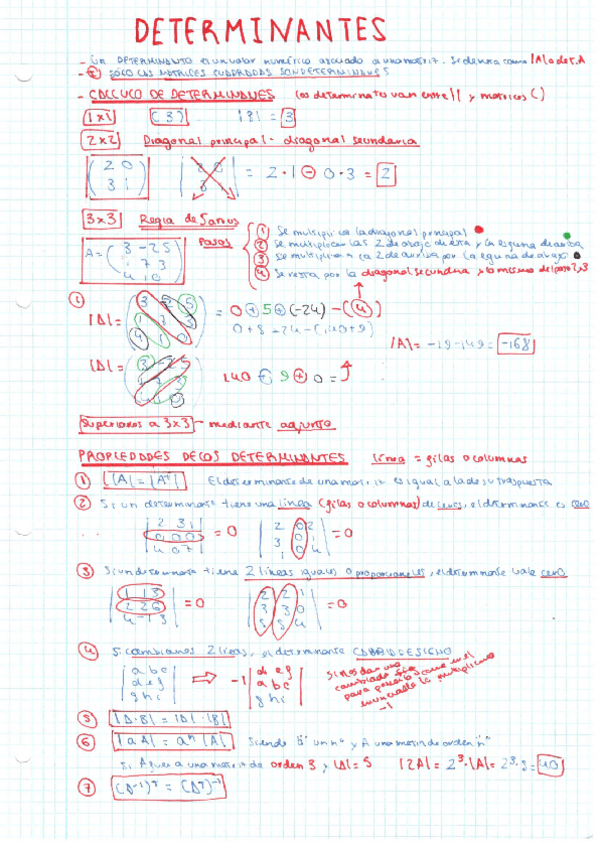 DETERMINANTES
- Un DETERMINANTE es un valor numérico asociado a una matriz. Se denota como |A| o det.A
- SÓLO LAS MATRICES CUADRADAS SON DETERMINANTES
- CALCULO DE DETERMINANTES (los determinantes van entre | | y matrices ( )
1x1 (3) |3| = 3
2x2 Diagonal principal - diagonal secundaria
2 0
3 1
= 2·1 - 0·3 = 2
3x3 Regla de Sarrus
Pasos
1 Se multiplica la diagonal principal
2 Se multiplican las 2 de abajo de esta y la esquina de arriba
3 Se multiplican la 2 de arriba por la esquina de abajo
4 Se resta por la diagonal secundaria y lo mismo del paso 2 y 3
A =
3 -2 5
1 7 3
4 1 0
1 |A| = = 0 + 5 + (-24) - (4)
0+5-24-(140+9)
|A| = -19-149 = -168
|A| = 140 + 9 + 0 =
Superiores a 3x3 - mediante adjunto
PROPIEDADES DE LOS DETERMINANTES línea = filas o columnas
1 |A| = |Aᵗ| El determinante de una matriz es igual a la de su traspuesta
2 Si un determinante tiene una línea (filas o columnas) de ceros, el determinante es CERO
2 3 1
0 0 0
4 0 7
= 0
2 0 2
3 0
1 0 4
= 0
3 Si un determinante tiene 2 líneas iguales o proporcionales, el determinante vale cero
1 1 3
2 2 6
4 -1 3
= 0
2 2 1
3 3 0
5 5 4
= 0
4 Si cambiamos 2 líneas, el determinante CAMBIA DE SIGNO
a b c
d e f
g h i
⇒ -1
d e f
a b c
g h i
Si nos dan una cambiada
para ponerla como en el
enunciado la multiplicamos
-1
5 |A·B| = |A|·|B|
6 |aA| = aⁿ|A| Siendo "a" un nº y A una matriz de orden "n"
Si A fuera una matriz de orden 3 y |A| = 5 |2A| = 2³·|A| = 2³·5 = 40
7 (A⁻¹)ᵗ = (Aᵗ)⁻¹